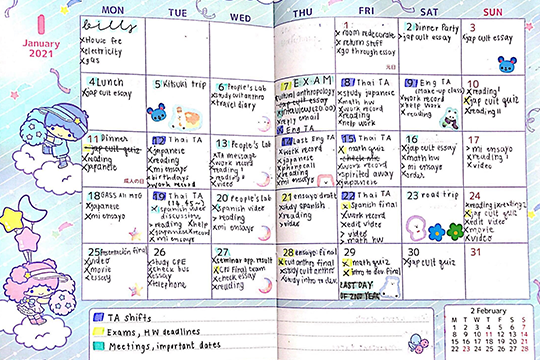 1
January
2021
MON TUE WED THU FRI SAT SUN
bills
x House fee
x electricity
x gas
1
x room redecorate
x return stuff
x go through essay
元日
2 Dinner Party
x jap cult essay
3
x jap cult essay
4 Lunch
x jap cult essay
5 Kitsuki trip
6 People's Lab
x study cult anthro
x travel diary
7 EXAM
cultural anthropology
x jap cult essay
x reply email
x Eng TA
8 Thai TA
x study japanese
x math hw
x work record
x reading
x help work
9 Eng TA
(make-up class)
x work record
x help
x reading
10
x reading!
x jap cult quiz
x reading II
11 Dinner
x jap cult quiz
x reading
x japanese
成人の日
12 Thai TA
x japanese
x reading
x mi ensayo
x birthday
x work record
13 People's Lab
x TA message
x work record
x reading 1
x reading II
x video
14 Last Eng TA
x work record
x japanese
x reading
x mi ensayo
15 Thai TA
x math quiz
x work record
x spirited away
x japanese
16
x jap cult essay
x math hw
x mi ensayo
17
x mi ensayo
x reading I
x video
18
x japanese
x mi ensayo
19 Thai TA
x spanish
discussion
x mi ensayo
20 People's Lab
x Spanish video
> reading
x mi ensayo
21 ensayo draft
x study spanish
x reading
> video
22 Thai TA
x Spanish final
x work record
x edit video
> video
> math hw
23 road trip
24
x jap cult quiz
x edit video
x movie
x video
25 Presentación final
x video
x movie
x essay
26
x study CPE
x check bus
x essay
x telephone
27
x seminar app. result
x CPE final exam
x check essay
x reading
28 ensayo final
x cult anthro final
x study cult anthro
x study intro to dev
29
x math quiz
x intro to dev final
LAST DAY
OF 2ND YEAR
30
x jap cult quiz
31
TA shifts
Exams, HW deadlines
Meetings, important dates
2 February
M T W T F S S
1 2 3 4 5 6 7
8 9 10 11 12 13 14
15 16 17 18 19 20 21
22 23 24 25 26 27 28